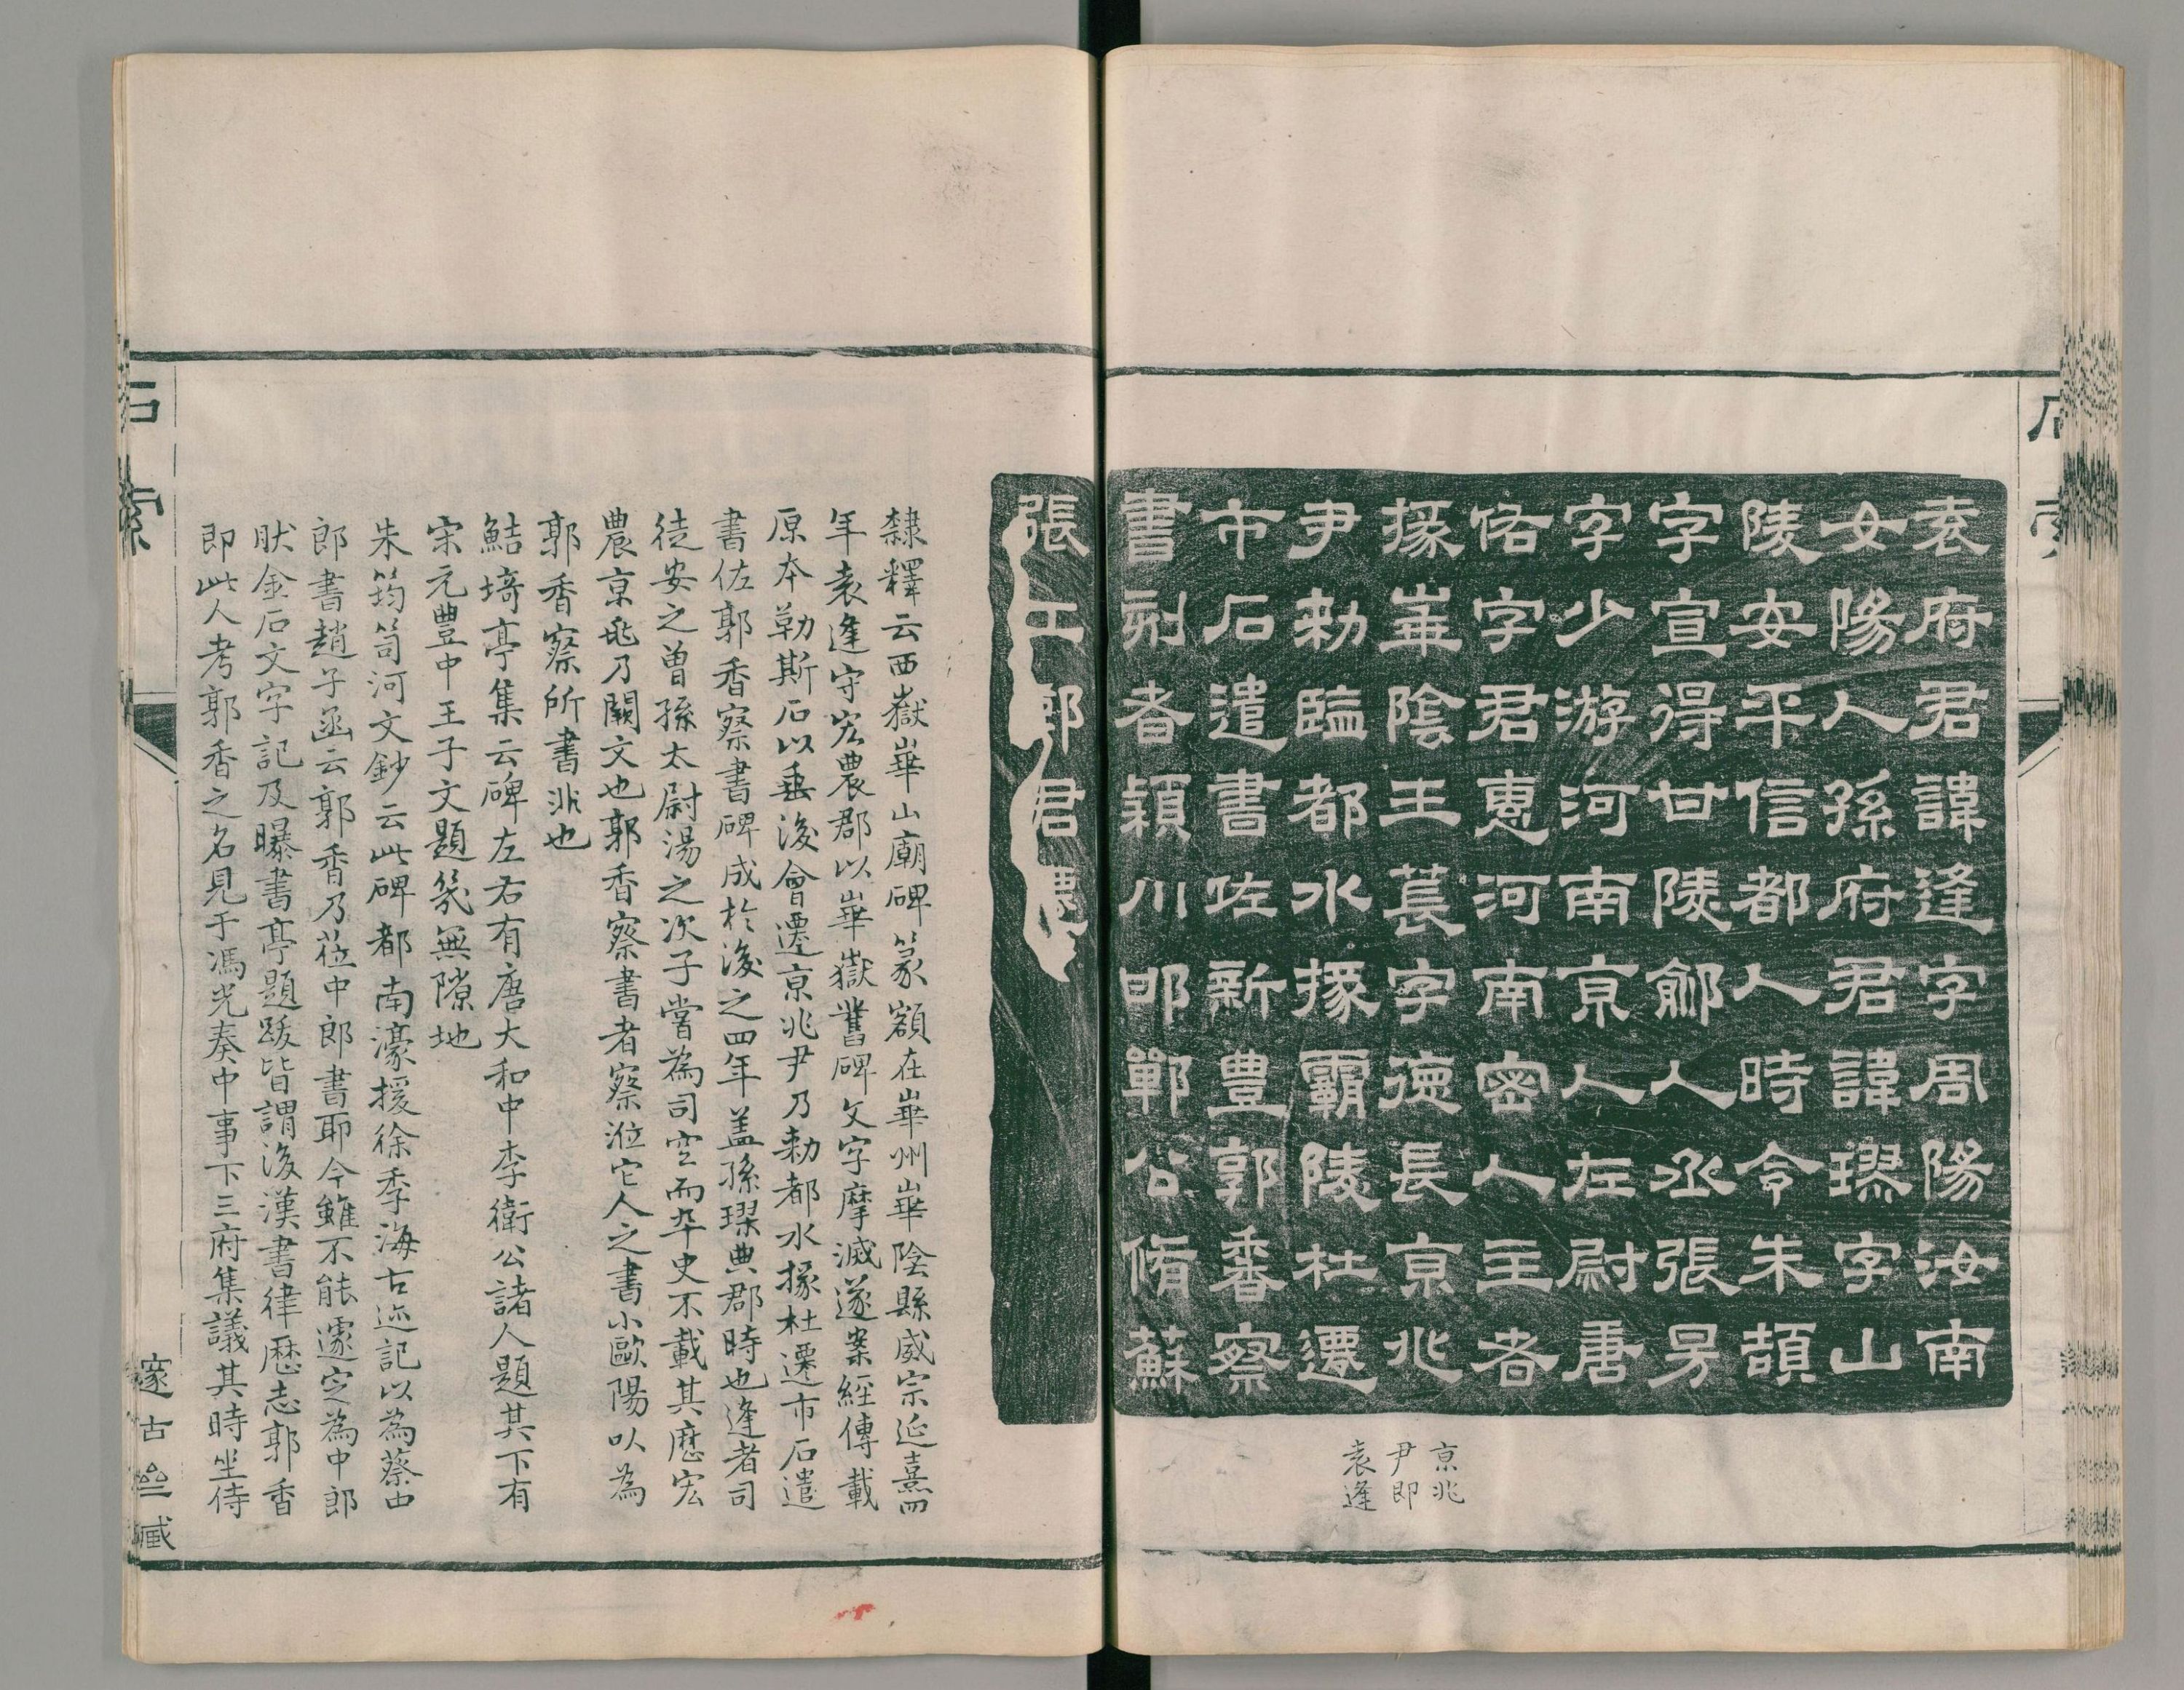 石索
袁府君諱逢字周陽汝南
女陽人孫府君諱璆字山
陵安平信都人時令朱頡
字宣得甘陵鄃人丞張昉
字少游河南京人左尉唐
佑字君惠河南密人主者
掾華陰王萇字德長京兆
尹勑臨都水掾霸陵杜遷
市石遣書佐新豐郭香察
書刻者潁川邯鄲公脩蘇
張工郭君遷
京兆
尹即
袁逢
隸釋云西嶽華山廟碑篆額在華州華陰縣威宗延熹四
年袁逢守宏農郡以華嶽舊碑文字摩滅遂案經傳載
原本勒斯石以垂後會遷京兆尹乃勑都水掾杜遷市石遣
書佐郭香察書碑成於後之四年盖孫璆典郡時也逢者司
徒安之曾孫太尉湯之次子嘗為司空而卒史不載其歷宏
農京兆乃闕文也郭香察書者察涖它人之書小歐陽以為
郭香察所書非也
鮚埼亭集云碑左右有唐大和中李衛公諸人題其下有
宋元豐中王子文題幾無隙地
朱筠笥河文鈔云此碑都南濠援徐季海古迹記以為蔡中
郎書趙子函云郭香乃莅中郎書耶今雖不能遽定為中郎
肰金石文字記及曝書亭題跋皆謂後漢書律歷志郭香
即此人考郭香之名見于馮光奏中事下三府集議其時坐侍
石索
邃古𠫤臧